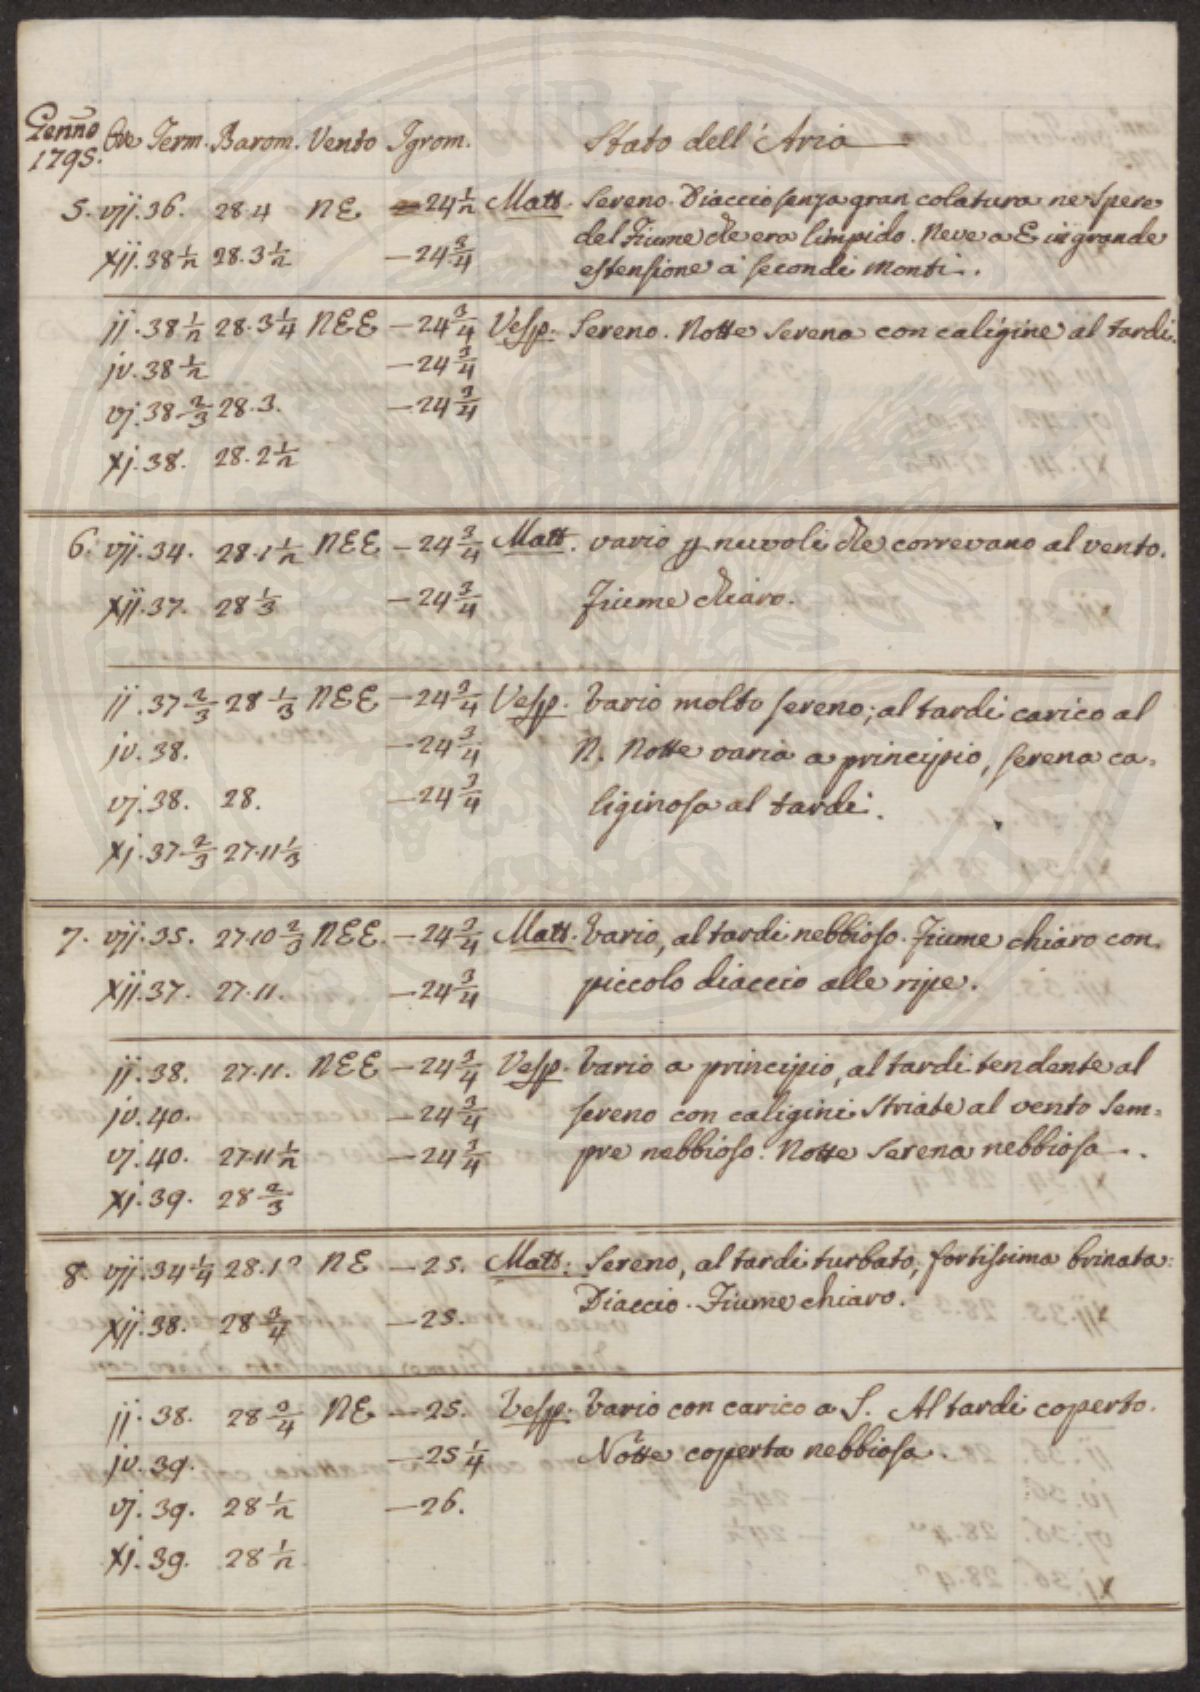 Genno 1795. Ore Term. Barom. Vento Igrom. Stato dell'Aria
5. vij. 36. 28.4 NE —24 1/2 Matt. Sereno. Diaccio senza gran colatura ne spere
del Fiume che era limpido. Neve a E in grande
xij. 38 1/2 28.3 1/2 —24 3/4 estensione a secondi Monti.
ij. 38 1/2 28.3 1/4 NEE —24 3/4 Vesp. Sereno. Notte serena con caligine al tardi.
iv. 38 1/2 —24 3/4
vj. 38 2/3 28.3. —24 3/4
xj. 38. 28.2 1/2
6. vij. 34. 28.1 1/2 NEE —24 3/4 Matt. vario p nuvoli che correvano al vento.
xij. 37. 28 1/3 —24 3/4 Fiume chiaro.
ij. 37 2/3 28 1/3 NEE —24 3/4 Vesp. Vario molto sereno; al tardi carico al
iv. 38. —24 3/4 N. Notte varia a principio, serena ca=
vj. 38. 28. —24 3/4 liginosa al tardi.
xj. 37 2/3 27.11 1/3
7. vij. 35. 27.10 2/3 NEE. —24 3/4 Matt. Vario, al tardi nebbioso. Fiume chiaro con
xij. 37. 27.11. —24 3/4 piccolo diaccio alle ripe.
ij. 38. 27.11. NEE —24 3/4 Vesp. Vario a principio, al tardi tendente al
iv. 40. —24 3/4 sereno con caligini striate al vento sem=
vj. 40. 27.11 1/2 —24 3/4 pre nebbioso. Notte serena nebbiosa.
xj. 39. 28 2/3
8. vij. 34 1/4 28.1° NE —25. Matt. Sereno, al tardi turbato, fortissima brinata:
xij. 38. 28 3/4 —25. Diaccio. Fiume chiaro.
ij. 38. 28 3/4 NE —25. Vesp. Vario con carico a S. Al tardi coperto.
iv. 39. —25 1/4 Notte coperta nebbiosa.
vj. 39. 28 1/2 —26.
xj. 39. 28 1/2